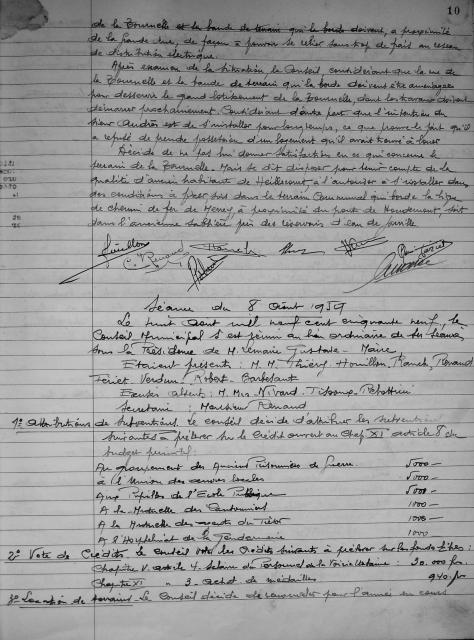 10
de la Tournelle et la bande de terrain qui la borde doivent, a proximité
de la grande rue, de façon a pouvoir se relier sans trop de frais au réseau
de distribution électrique.
Après examen de la situation, le Conseil considérant que la rue de
la Tournelle et la bande de terrain qui la borde doivent être aménagées
pour desservir le grand lotissement de la Tournelle, dont les travaux doivent
démarrer prochainement. Considérant d'autre part que l'intention du
sieur André est de s'installer pour longtemps, ce que prouve le fait qu'il
a refusé de prendre possession d'un logement qu'il avait trouvé à louer
Décide de ne pas lui donner satisfaction en ce qui concerne le
terrain de la Tournelle. Mais se dit disposé, pour tenir compte de la
qualité d'ancien habitant de Heillecourt, à l'autoriser à s'installer dans
des conditions à fixer soit dans le terrain Communal qui borde la ligne
de chemin de fer de Mirecourt, à proximité du pont de Houdemont, soit
dans l'ancienne sablière près des réservoirs d'eau de
Séance du 8 Août 1959
Le huit Août mil neuf cent cinquante neuf, le
Conseil Municipal s'est réuni au lieu ordinaire de ses séances
sous la Présidence de M. Lemaire Gustave - Maire
Etaient présents : M.M. Thiéry, Houillon, Ranck, Renaud
Fériet Verdun Robert - Barbesant
Excusés absents : M. Nivard
Secrétaire : Monsieur Renaud
1° Attributions de subventions. Le conseil décide d'attribuer les subventions
suivantes à prélever sur le Crédit ouvert au Chap XI article 8 du
budget primitif
Au groupement des Anciens Prisonniers de Guerre 5000 -
à l'Union des œuvres locales 5000 -
Aux Pupilles de l'Ecole Publique 5000 -
A la Mutuelle des Cantonniers 1000 -
A la Mutuelle des agents du Trésor 1000 -
A l'Orphelinat de la Gendarmerie 1000
2° Vote de Crédits. Le Conseil vote les Crédits suivants à prélever sur les fonds libres :
Chapitre V article 4. Salaire du Personnel de la Voirie Urbaine : 30.000 fr
Chapitre XI " 3. achat de médailles 940 fr
3° Location de terrains. Le Conseil décide de renouveler pour l'année en cours